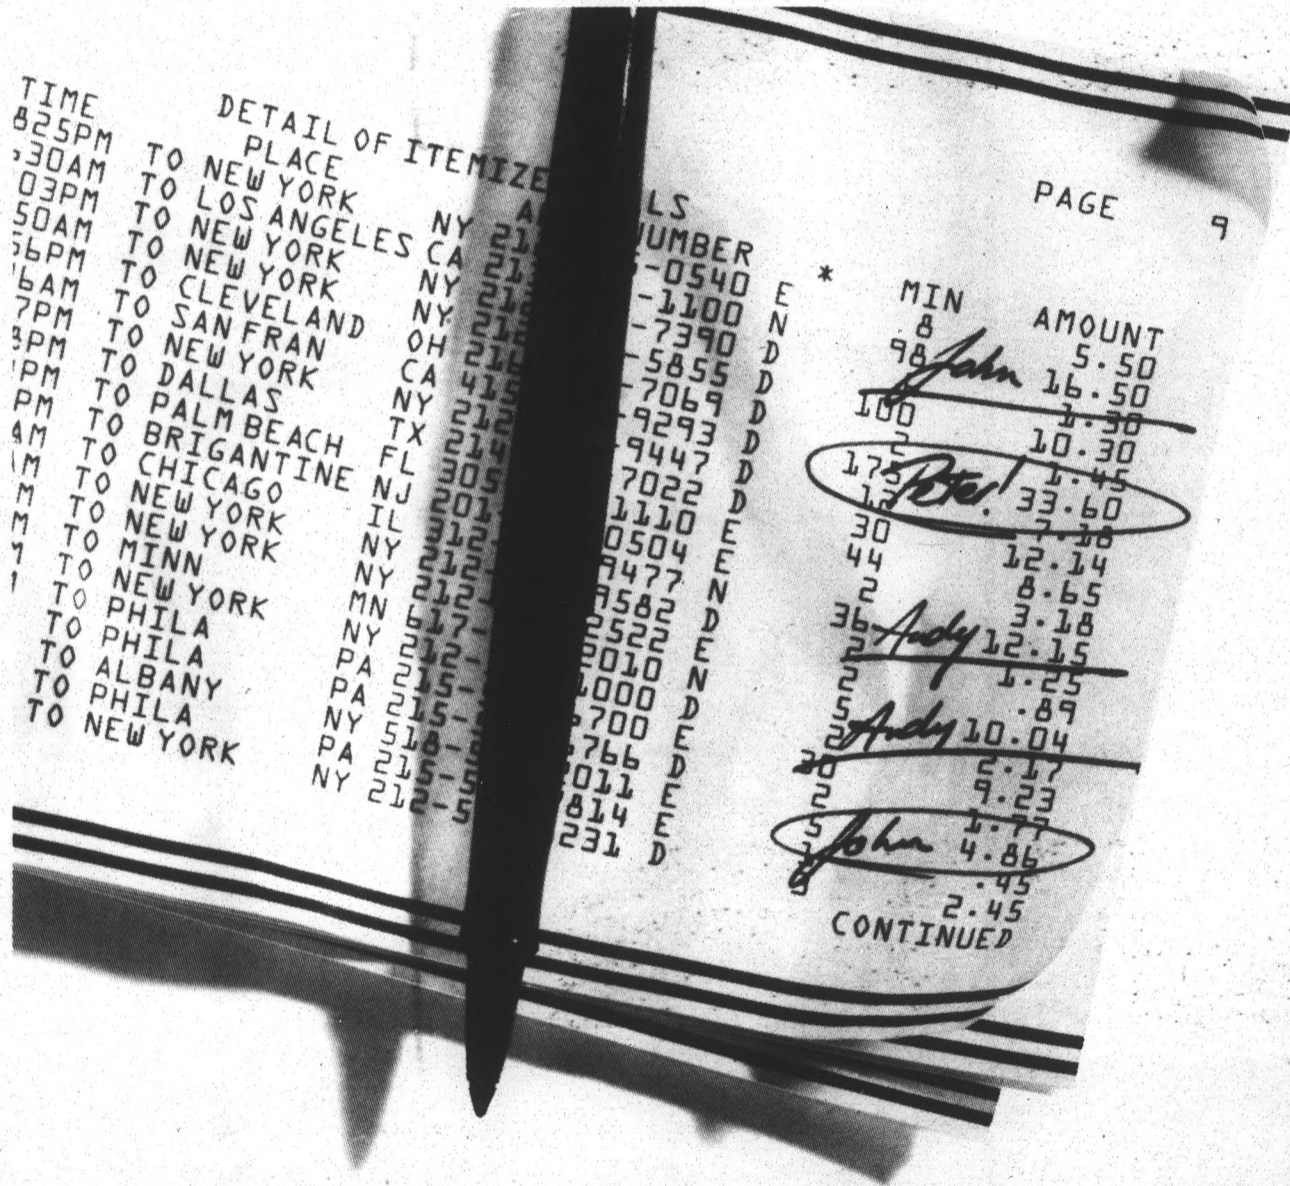 PAGE 9
DETAIL OF ITEMIZE LS
TIME PLACE NUMBER * MIN AMOUNT
825PM TO NEW YORK NY -0540 E 8 5.50
30AM TO LOS ANGELES CA 21 -1100 N 98 John 16.50
03PM TO NEW YORK NY 212 -7390 D 1.30
50AM TO NEW YORK NY 212 -5855 D 100 10.30
56PM TO CLEVELAND OH 216 -7069 D 2 1.45
6AM TO SAN FRAN CA 415 -9293 D 175 Peter! 33.60
7PM TO NEW YORK NY 212 -9447 D 12 7.18
8PM TO DALLAS TX 214 7022 D 30 12.14
PM TO PALM BEACH FL 305 1110 E 44 8.65
PM TO BRIGANTINE NJ 201 0504 E 2 3.18
AM TO CHICAGO IL 312 9477 N 36 Andy 12.15
M TO NEW YORK NY 212 9582 D 2 1.25
M TO NEW YORK NY 212- 2522 E 2 .89
M TO MINN MN 617- 2010 N 5 Andy 10.04
TO NEW YORK NY 212- 1000 D 2 2.17
TO PHILA PA 215- 6700 E 30 9.23
TO PHILA PA 215- 766 D 2 1.77
TO ALBANY NY 518- 011 E 5 John 4.86
TO PHILA PA 215-5 814 E .45
TO NEW YORK NY 212-5 231 D 3 2.45
CONTINUED